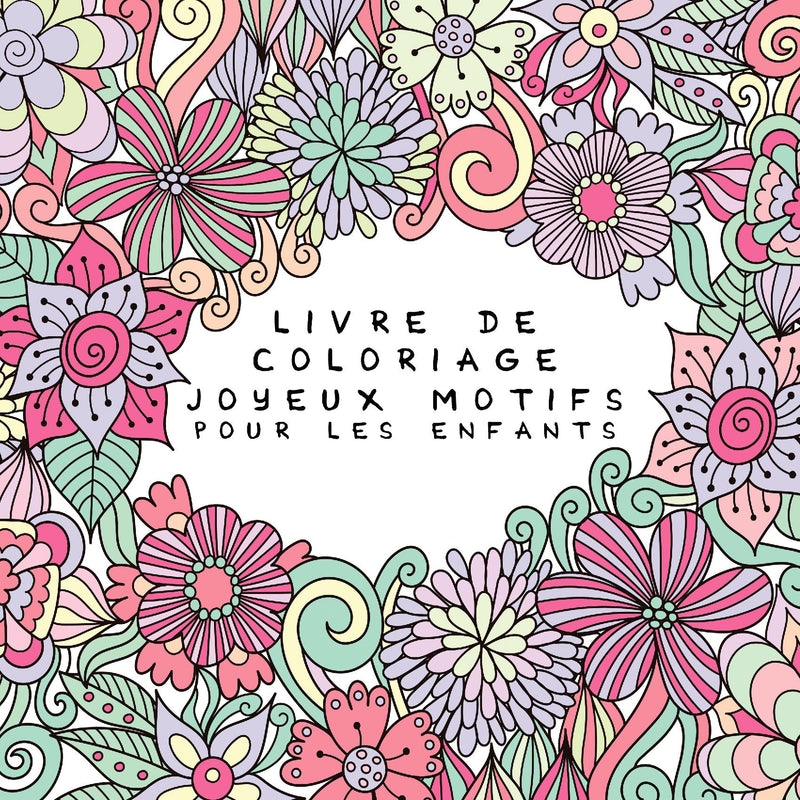 LIVRE DE
COLORIAGE
JOYEUX MOTIFS
POUR LES ENFANTS